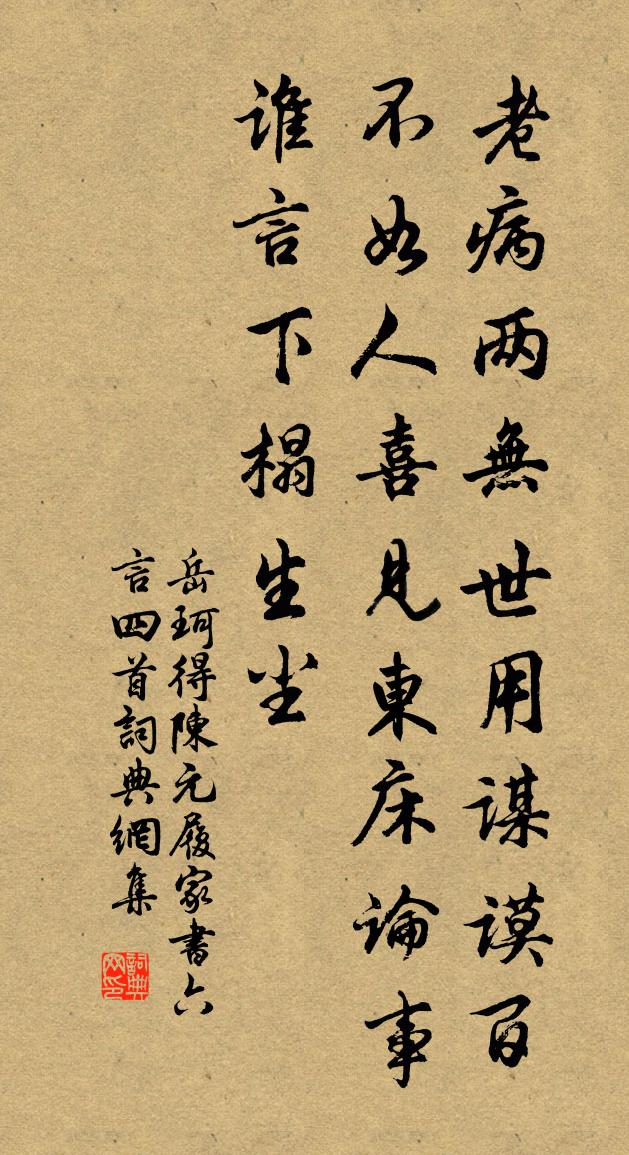 老病两無世用謀謨百
不如人喜見東床論事
誰言下榻生尘
岳珂得陳元履家書六
言四首詞典網集
詞典网印